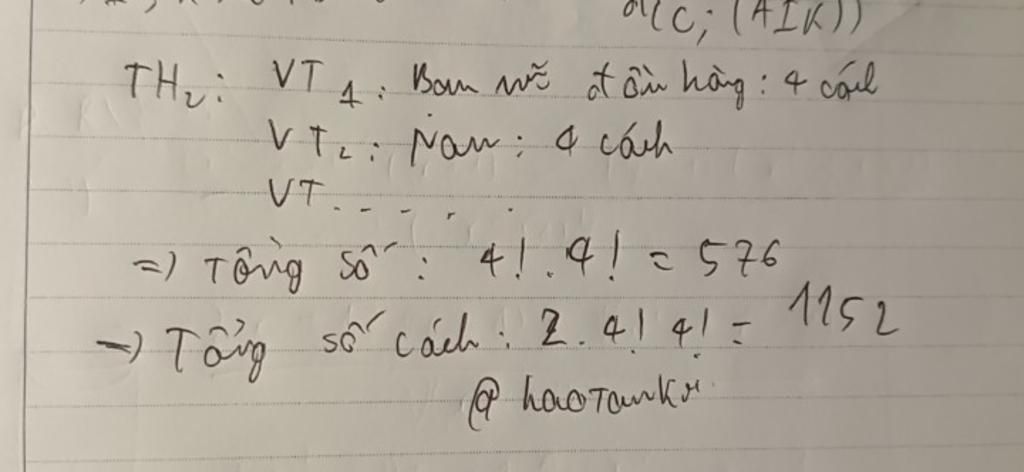 d(C; (AIK))
TH₂: VT₁: Bạn nữ đầu hàng: 4 cách
VT₂: Nam: 4 cách
VT.....
=> Tổng số: 4!.4! = 576
→ Tổng số cách: 2.4!4! = 1152